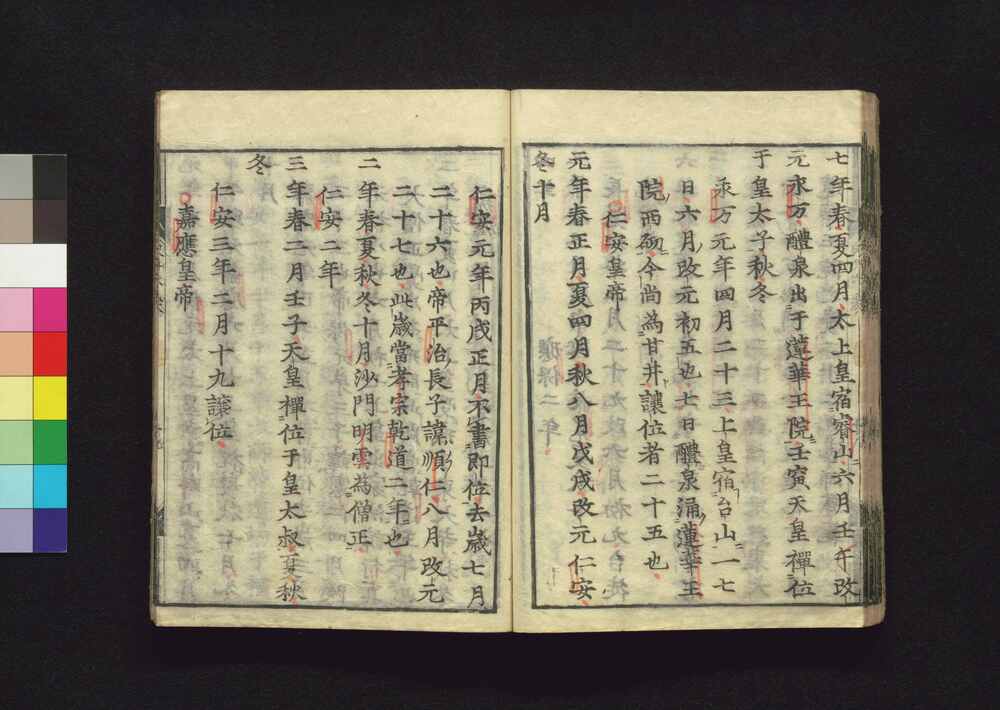 七年春夏四月太上皇宿睿山六月壬午改
元永万醴泉出于蓮華王院壬寅天皇禪位
于皇太子秋冬
永万元年四月二十三上皇宿台山一七
日六月改元初五也七日醴泉涌蓮華王
院西砌今尚為甘井讓位者二十五也
仁安皇帝
元年春正月夏四月秋八月戊戌改元仁安
冬十月
仁安元年丙戌正月不書即位去歲七月
二十六也帝平治長子諱順仁八月改元
二十七也此歲當孝宗乾道二年也
二年春夏秋冬十月沙門明雲為僧正
仁安二年
三年春二月壬子天皇禪位于皇太叔夏秋
冬
仁安三年二月十九讓位
嘉應皇帝